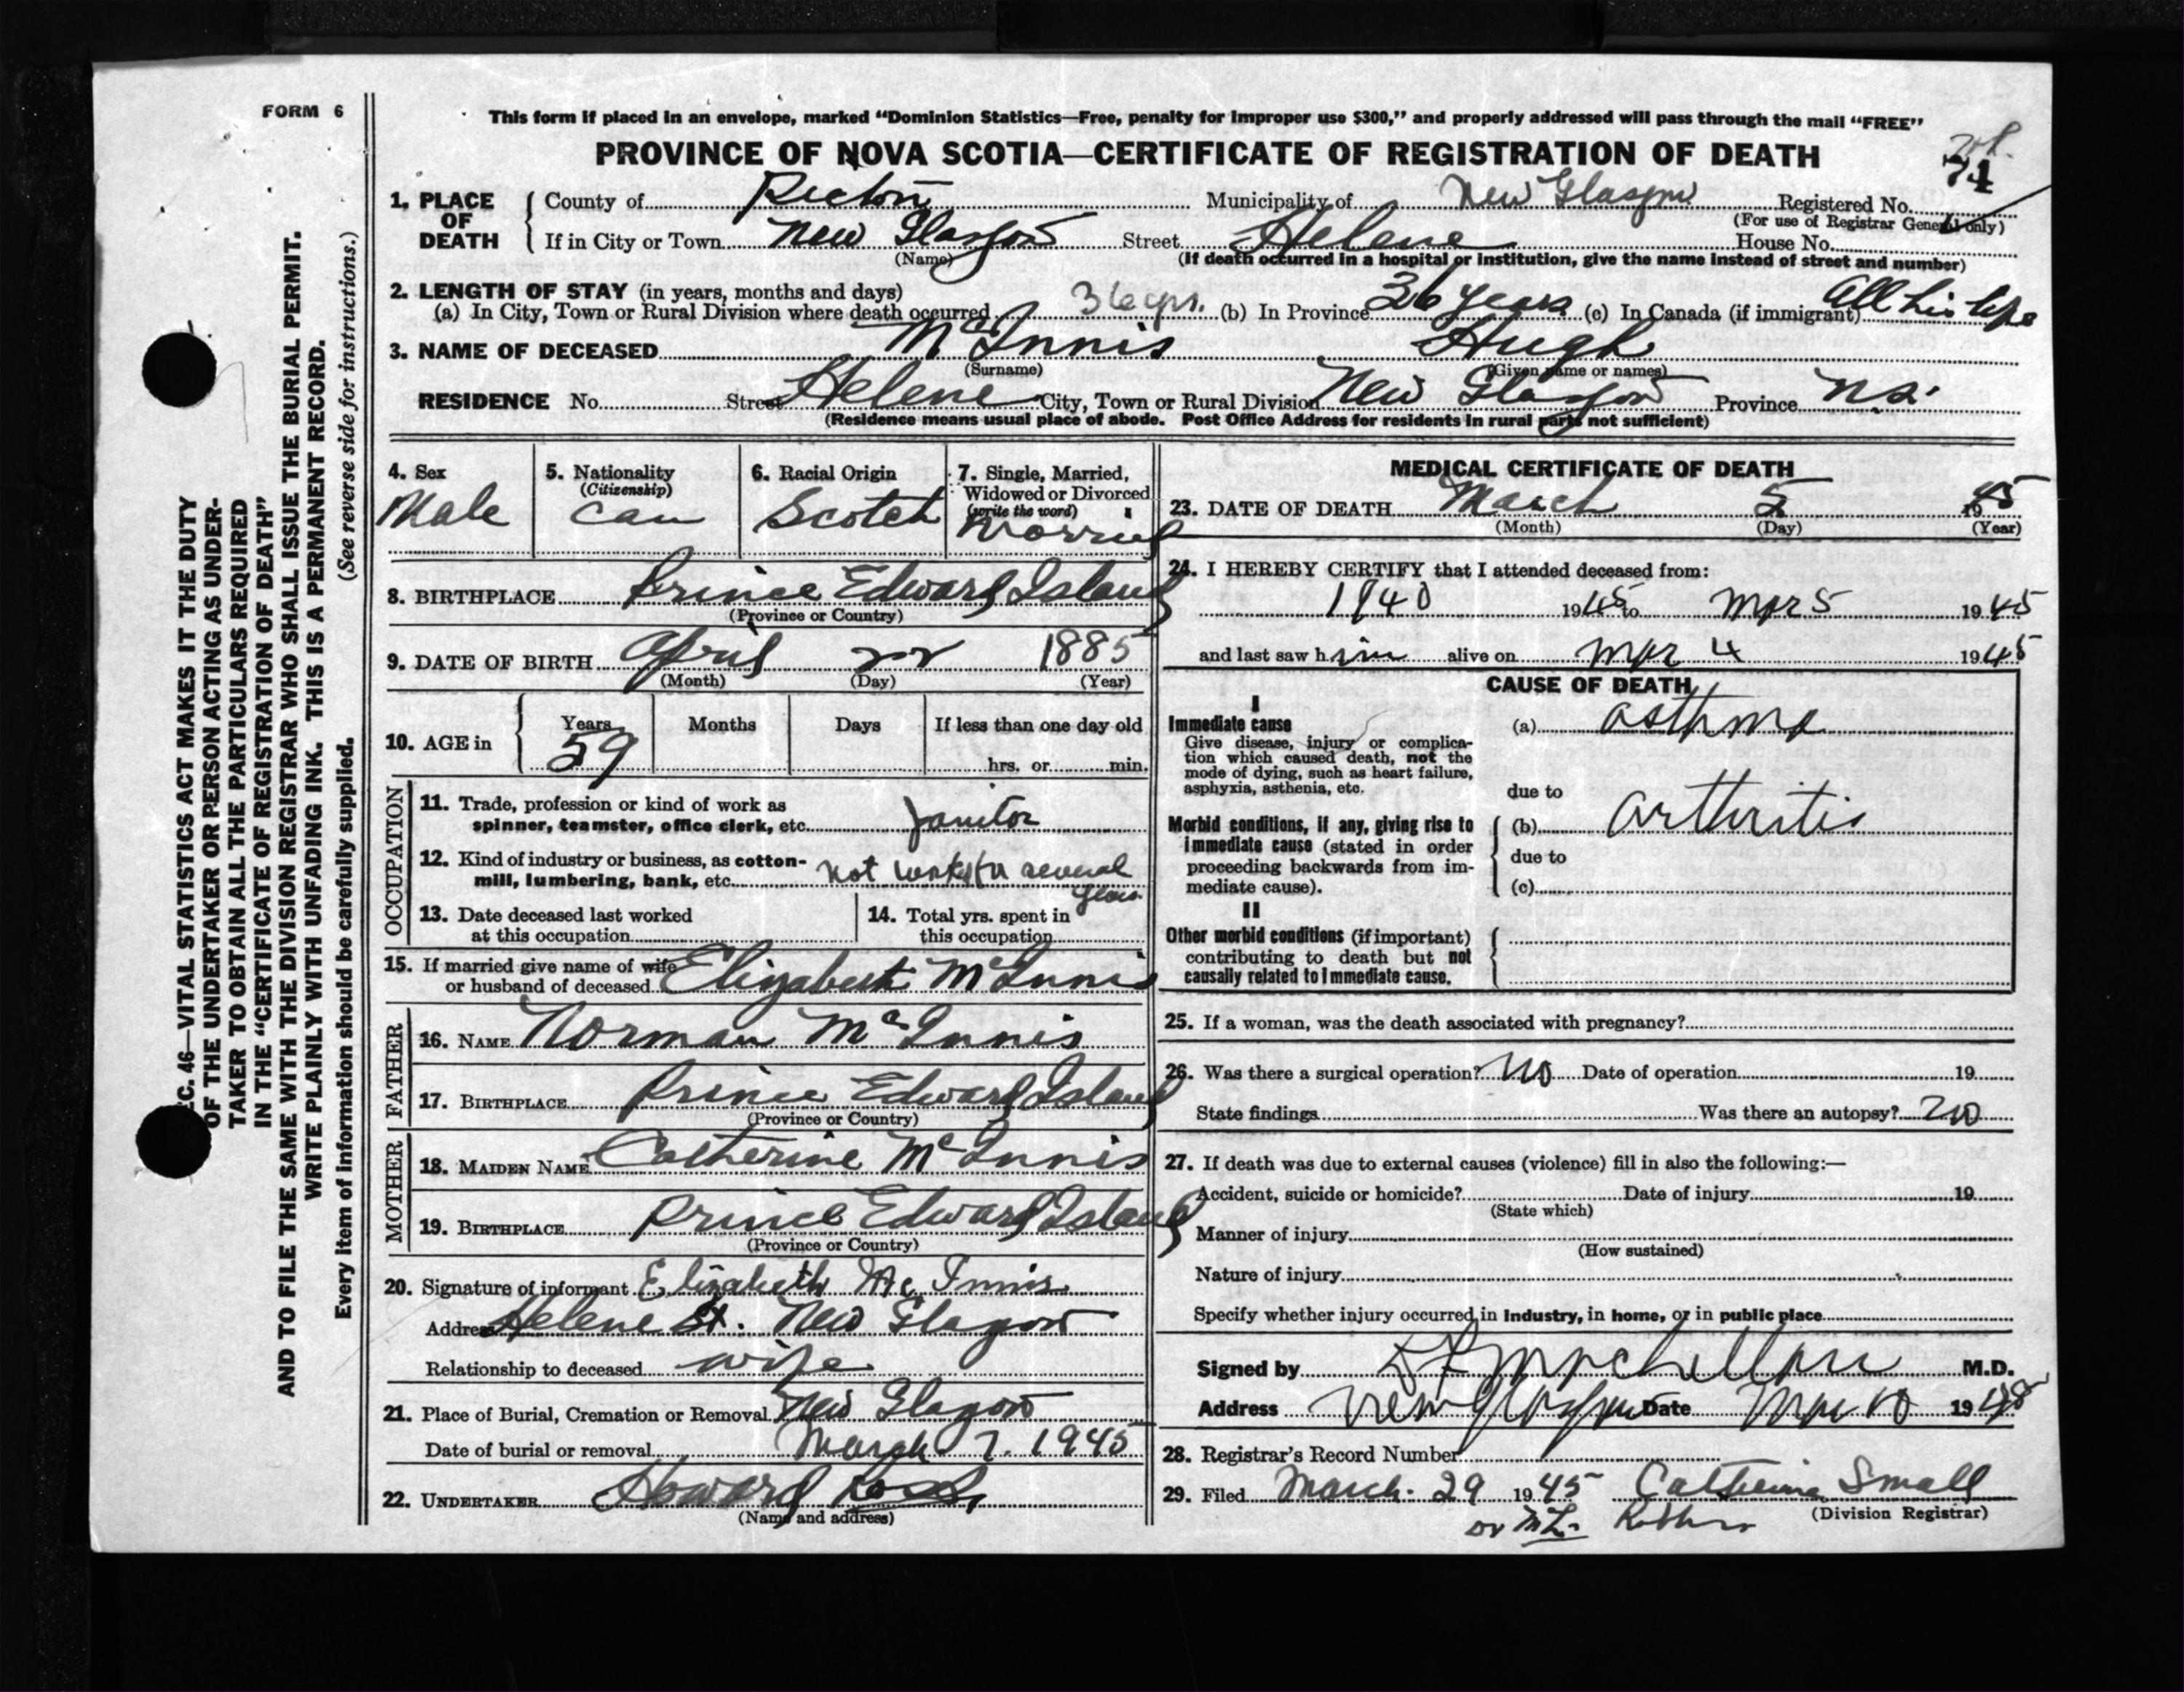 FORM 6
This form if placed in an envelope, marked "Dominion Statistics—Free, penalty for improper use $300," and properly addressed will pass through the mail "FREE"
PROVINCE OF NOVA SCOTIA—CERTIFICATE OF REGISTRATION OF DEATH
74
1. PLACE OF DEATH County of Pictou Municipality of New Glasgow Registered No.
(For use of Registrar General only)
If in City or Town New Glasgow Street Helene House No.
(Name) (If death occurred in a hospital or institution, give the name instead of street and number)
2. LENGTH OF STAY (in years, months and days)
(a) In City, Town or Rural Division where death occurred 36 yrs. (b) In Province 36 years (c) In Canada (if immigrant) All his life
3. NAME OF DECEASED McInnis Hugh
(Surname) (Given name or names)
RESIDENCE No. Street Helene City, Town or Rural Division New Glasgow Province N.S.
(Residence means usual place of abode. Post Office Address for residents in rural parts not sufficient)
4. Sex
Male
5. Nationality
(Citizenship)
Can
6. Racial Origin
Scotch
7. Single, Married,
Widowed or Divorced
(write the word)
Married
8. BIRTHPLACE Prince Edward Island
(Province or Country)
9. DATE OF BIRTH April 22 1885
(Month) (Day) (Year)
10. AGE in Years Months Days If less than one day old
59 hrs. or min.
OCCUPATION
11. Trade, profession or kind of work as
spinner, teamster, office clerk, etc. Janitor
12. Kind of industry or business, as cotton-
mill, lumbering, bank, etc. not worked for several
years
13. Date deceased last worked
at this occupation
14. Total yrs. spent in
this occupation
15. If married give name of wife
or husband of deceased Elizabeth McInnis
FATHER
16. NAME Norman McInnis
17. BIRTHPLACE Prince Edward Island
(Province or Country)
MOTHER
18. MAIDEN NAME Catherine McInnis
19. BIRTHPLACE Prince Edward Island
(Province or Country)
20. Signature of informant Elizabeth McInnis
Address Helene St. New Glasgow
Relationship to deceased wife
21. Place of Burial, Cremation or Removal New Glasgow
Date of burial or removal March 7. 1945
22. UNDERTAKER Howard Ross
(Name and address)
MEDICAL CERTIFICATE OF DEATH
23. DATE OF DEATH March 5 1945
(Month) (Day) (Year)
24. I HEREBY CERTIFY that I attended deceased from:
1940 1945 to Mar 5 1945
and last saw him alive on Mar 4 1945
CAUSE OF DEATH
I
Immediate cause (a) asthma
Give disease, injury or complica-
tion which caused death, not the
mode of dying, such as heart failure,
asphyxia, asthenia, etc.
due to
Morbid conditions, if any, giving rise to
immediate cause (stated in order
proceeding backwards from im-
mediate cause).
(b) arthritis
due to
(c)
II
Other morbid conditions (if important)
contributing to death but not
causally related to immediate cause.
25. If a woman, was the death associated with pregnancy?
26. Was there a surgical operation? no Date of operation 19
State findings Was there an autopsy? no
27. If death was due to external causes (violence) fill in also the following:—
Accident, suicide or homicide? Date of injury 19
(State which)
Manner of injury
(How sustained)
Nature of injury
Specify whether injury occurred in industry, in home, or in public place
Signed by MacLellan M.D.
Address New Glasgow Date Mar 10 19
28. Registrar's Record Number
29. Filed March. 29 1945 Catherine Small
(Division Registrar)
EC. 46—VITAL STATISTICS ACT MAKES IT THE DUTY
OF THE UNDERTAKER OR PERSON ACTING AS UNDER-
TAKER TO OBTAIN ALL THE PARTICULARS REQUIRED
IN THE "CERTIFICATE OF REGISTRATION OF DEATH"
AND TO FILE THE SAME WITH THE DIVISION REGISTRAR WHO SHALL ISSUE THE BURIAL PERMIT.
WRITE PLAINLY WITH UNFADING INK. THIS IS A PERMANENT RECORD.
Every item of information should be carefully supplied. (See reverse side for instructions.)